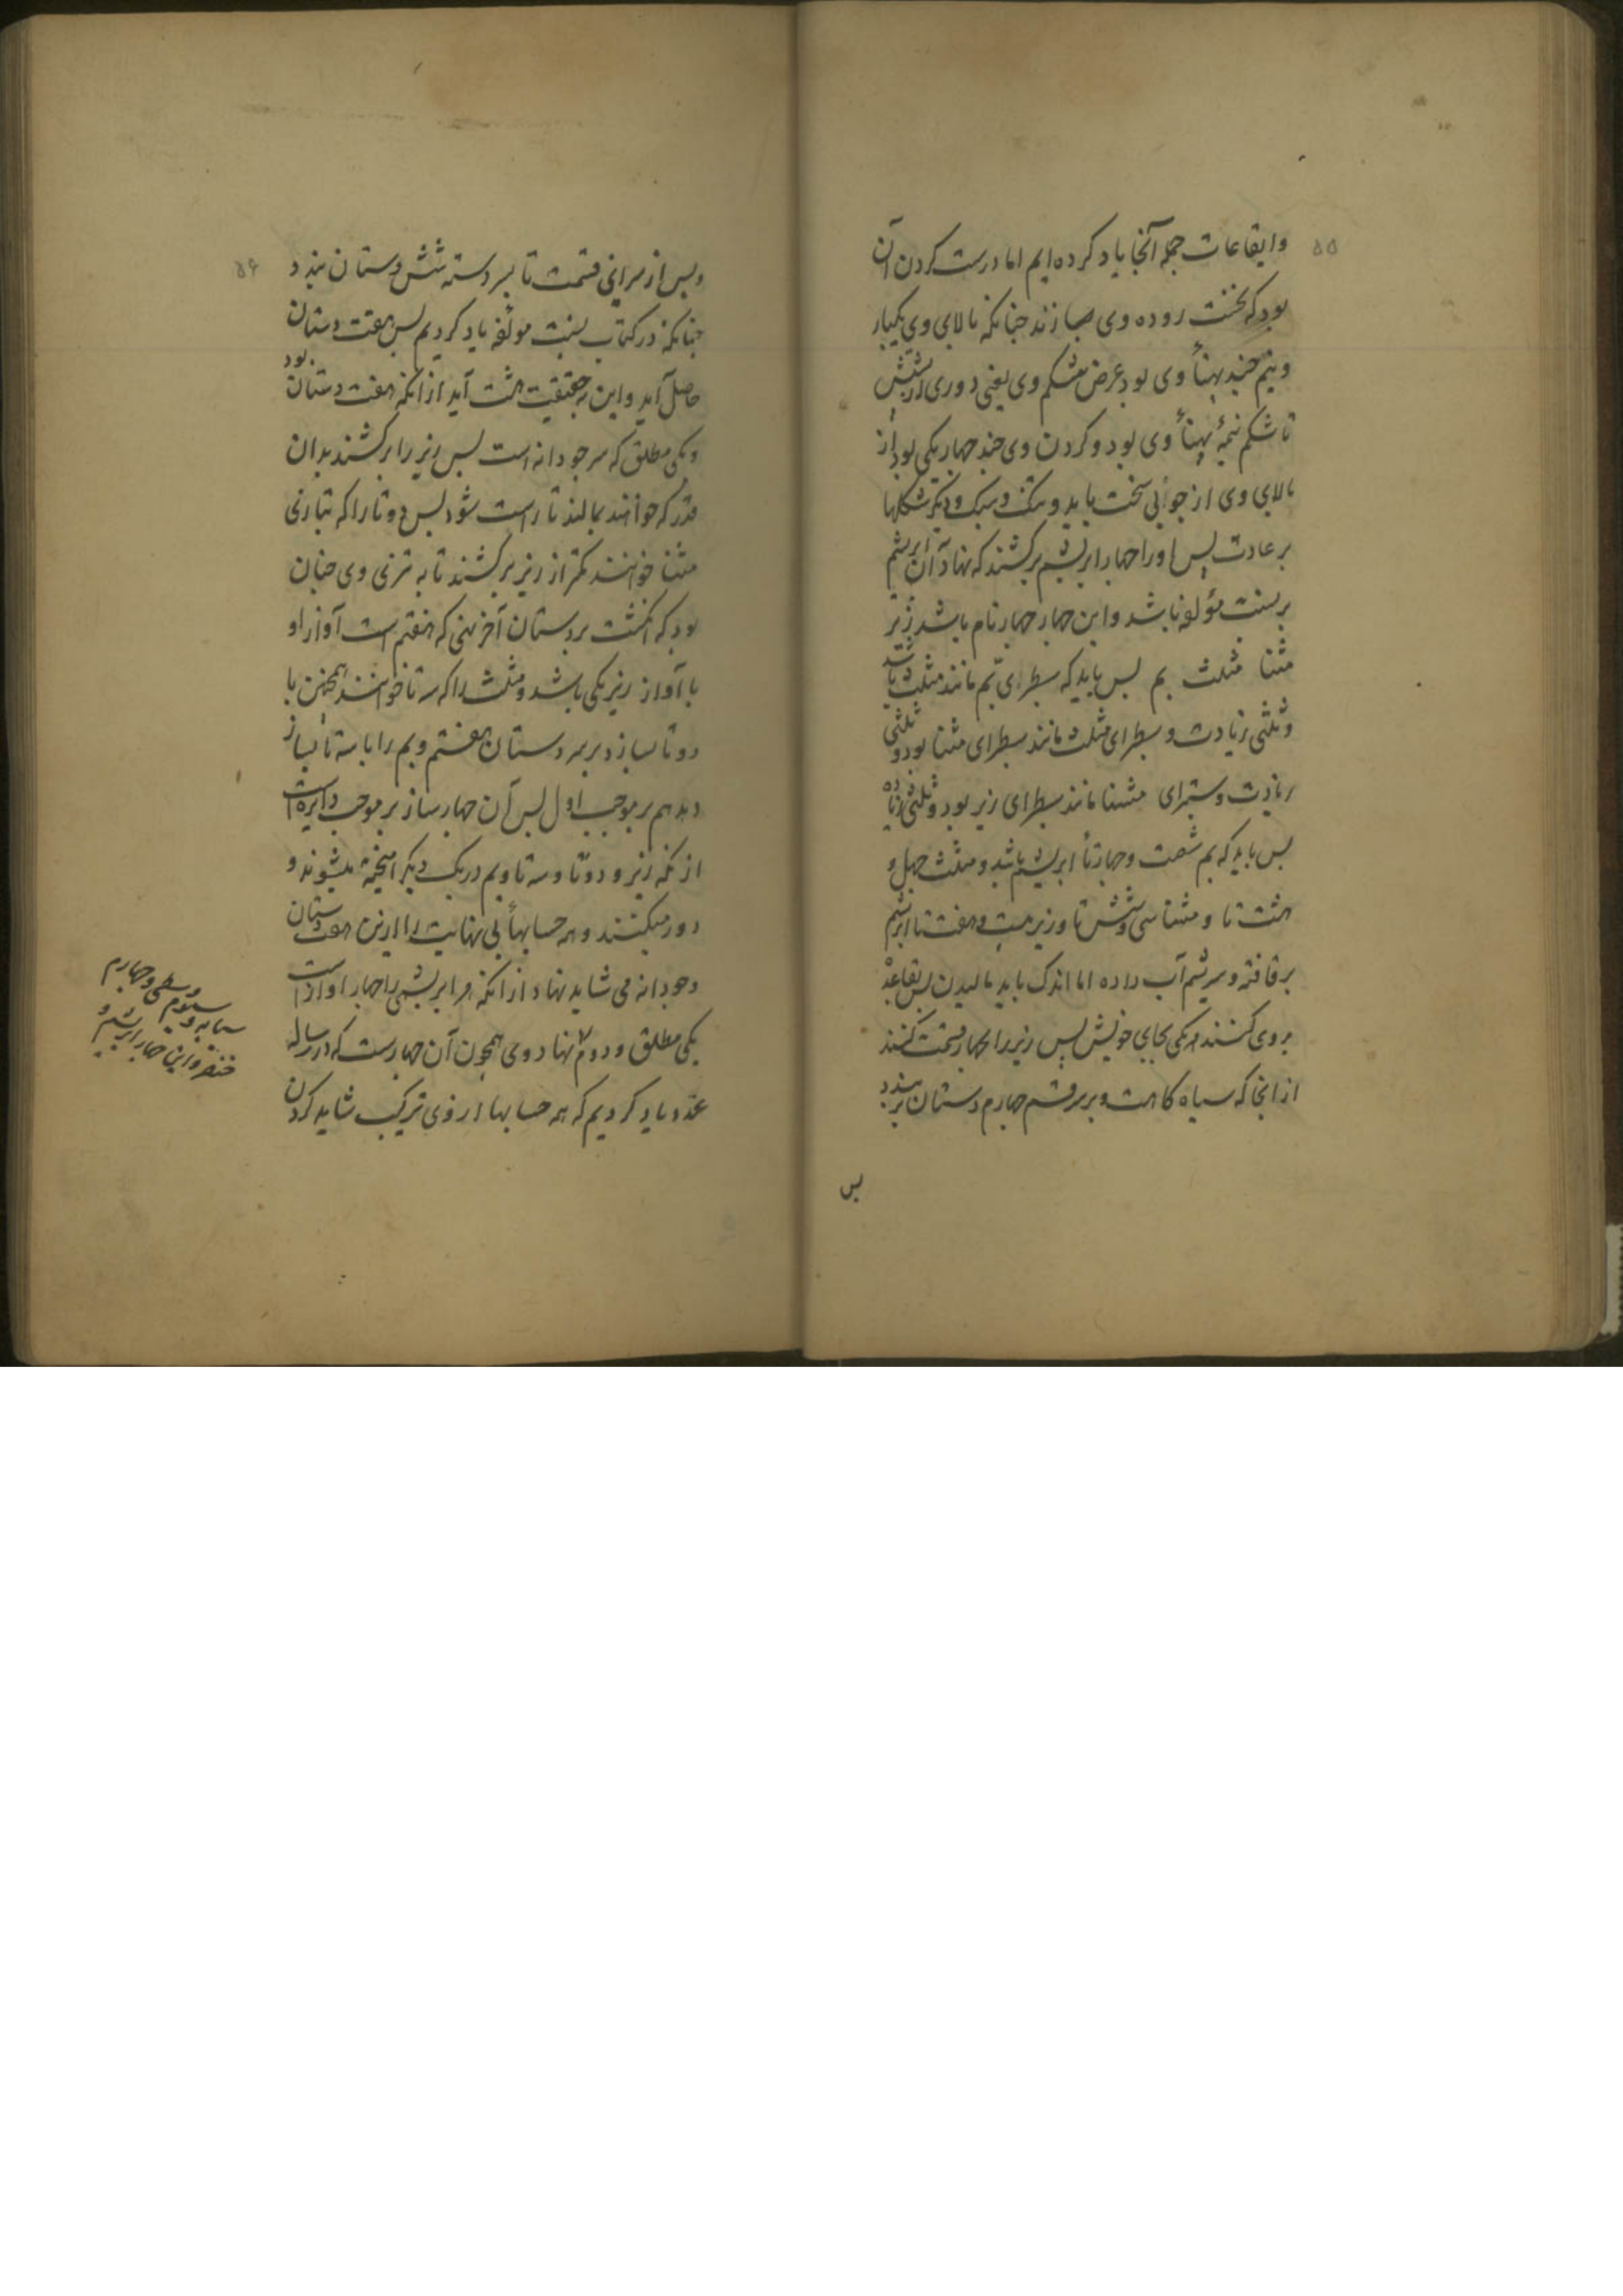 ۵۵
وایقاعات جمله آنجا یاد کرده ایم اما درست کردن آن
بود که نخست روده وی بسازند چنانکه بالای وی یکبار
ونیم چند پهنأ وی بود عرض شکم وی یعنی دوری از پشتش
تا شکم نیمهٔ پهنأ وی بود و کردن وی چند چهار یکی بود از
بالای وی از چوبی سخت باید و تنک و سبک و دیگر شکلها
بر عادت پس او را چهار ابریشم برکشند که نهاد آن ابریشم
بر نسبت مؤلفه باشد و این چهار چهار نام باشد زیر
مثنا مثلث بم پس باید که سطبرای بم مانند مثلث باشد
و ثلثی زیادت و سطبرای مثلث مانند سطبرای مثنا بود و ثلثی
زیادت و ستبرای مثنا مانند سطبرای زیر بود و ثلثی زیاده
پس باید که بم شصت و چهار تا ابریشم باشد و مثلث چهل و
هشت تا و مثنا سی و شش تا و زیر بیست و هفت تا ابریشم
بر تافته و سریشم آب داده اما اندک باید مالیدن پس بقاعده
بر وی کنند هر یکی بجای خویش پس زیر را بچهار قسمت کنند
از آنجا که سیاه کاهست و بر سر قسم چهارم دستان بر بندد
پس
۵۶
و پس از سر این قسمت تا سر دسته شش دستان بندد
چنانکه در کتاب نسبت مولفه یاد کردیم پس هفت دستان
حاصل آید و این بحقیقت هشت آید از آنکه هفت دستان بود
و یکی مطلق که سر جودانه است پس زیر را برکشند بدان
قدر که خوانند بمالند تا راست شود پس دو تا را که بتازی
مثنا خوانند کمتر از زیر برکشند تا به تری وی چنان
بود که انگشت بر دستان آخر نهی که هفتم است آواز او
با آواز زیر یکی باشد و مثلث را که سه تا خوانند همچنین با
دو تا بسازد بر سر دستان هفتم و بم را با سه تا بساز
دهد هم بر موجب اول پس آن چهار ساز بر موجب دایره است
از آنکه زیر و دو تا و سه تا و بم در یک دیگر آمیخته میشوند و
دور میکنند و همه حسابهأ بی نهایت را از این هفت دستان
و جودانه می شاید نهاد از آنکه هر ابریشمی را چهار آواز است
یکی مطلق و دوم نهاد وی همچون آن چهارست که در رسالهٔ
عدد یاد کردیم که همه حسابها از وی ترکیب شاید کردن
سبابه و سیوم وسطی و چهارم
خنصر و این چهار ابریشم و